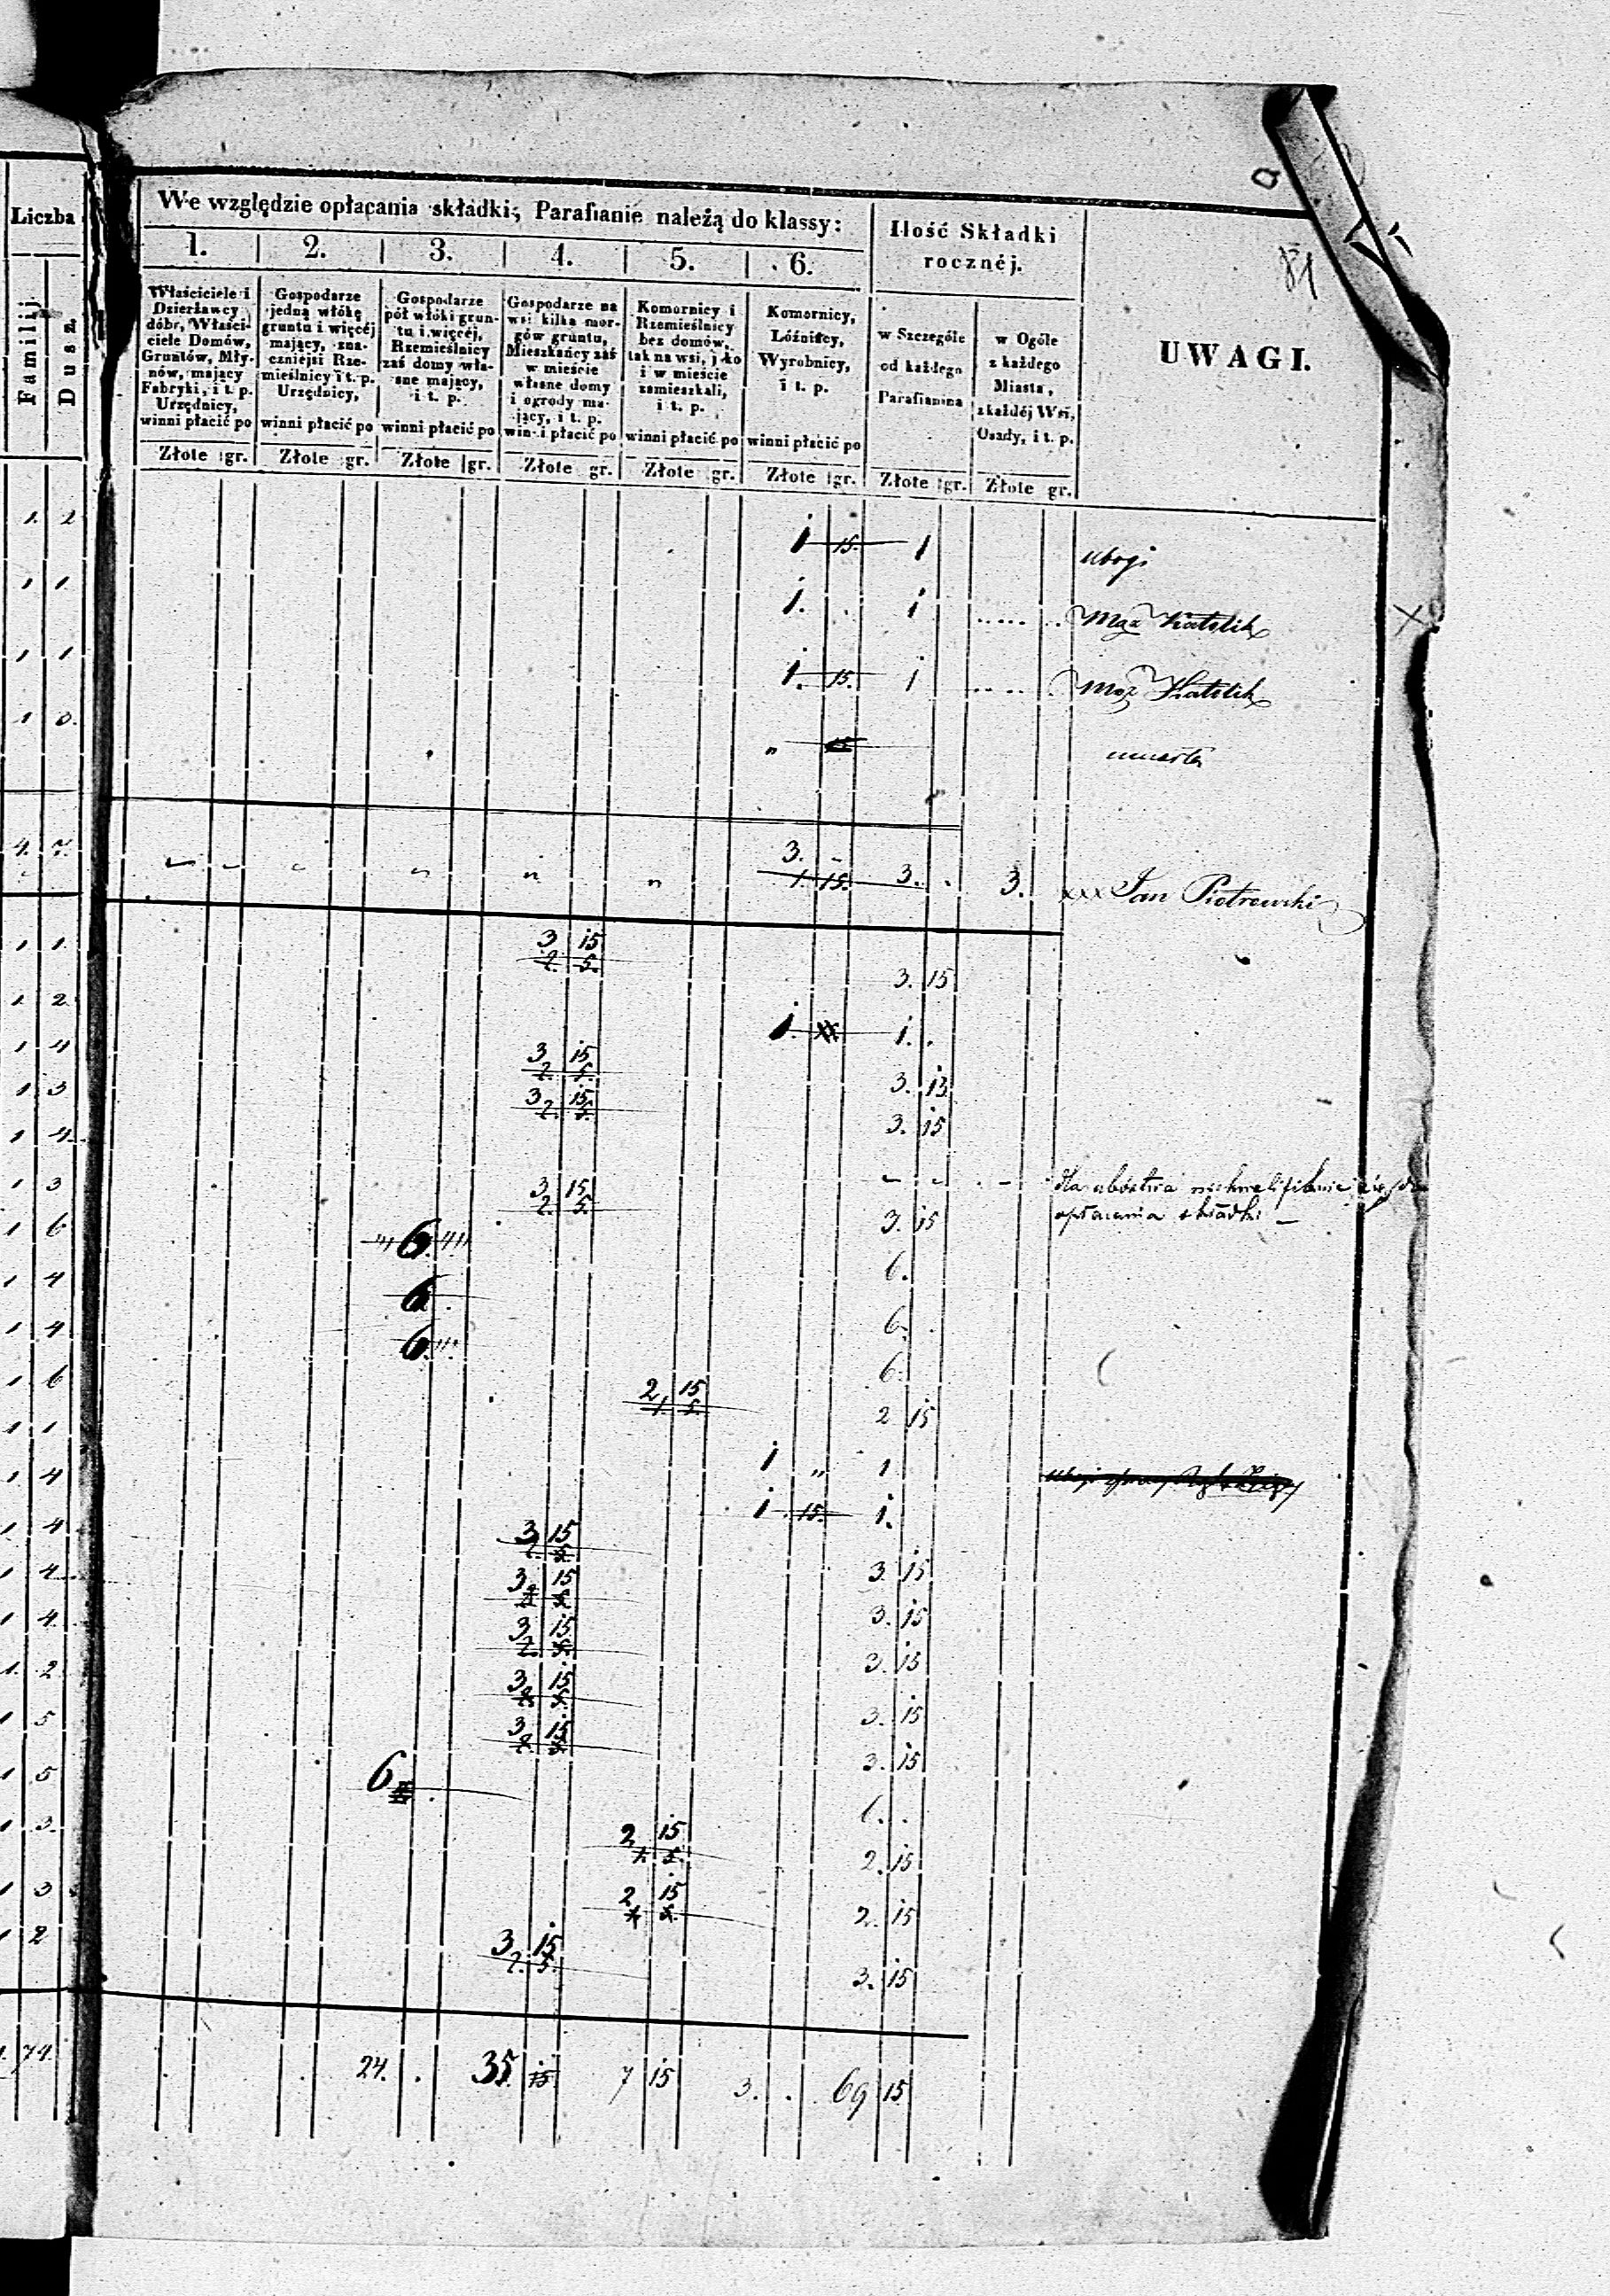 81
Liczba
Familij
Dusz.
We względzie opłacania składki, Parafianie należą do klassy:
Ilość Składki
rocznéj.
UWAGI.
1. 2. 3. 4. 5. 6.
Właściciele i
Dzierżawcy
dóbr, Właści-
ciele Domów,
Gruntów, Mły-
nów, mający
Fabryki, i t. p.
Urzędnicy,
winni płacić po
Gospodarze
jedną włókę
gruntu i więcéj
mający, zna-
czniejsi Rze-
mieślnicy i t. p.
Urzędnicy,
winni płacić po
Gospodarze
pół włóki grun-
tu i więcéj,
Rzemieślnicy
zaś domy wła-
sne mający,
i t. p.
winni płacić po
Gospodarze na
wsi kilka mor-
gów gruntu,
Mieszkańcy zaś
w mieście
własne domy
i ogrody ma-
jący, i t. p.
winni płacić po
Komornicy i
Rzemieślnicy
bez domów,
tak na wsi, jako
i w mieście
zamieszkali,
i t. p.
winni płacić po
Komornicy,
Lóźniccy,
Wyrobnicy,
i t. p.
winni płacić po
w Szczególe
od każdego
Parafianina
w Ogóle
z każdego
Miasta,
z każdéj Wsi,
Osady, i t. p.
Złote gr. Złote gr. Złote gr. Złote gr. Złote gr. Złote gr. Złote gr. Złote gr.
1. 2 1 15. 1 ubogi
1 1. 1. . 1 ..... . Mąż Katolik
1 1 1. 15. 1 .... . Mąż Katolik
1 0. " umarła
4. 7. 3. -
1. 15. 3. . 3. xxx Jan Piotrowski
1 1. 3 15
2. 5. 3. 15
1. 2. 1. 1. .
1 4 3 15
2. 5. 3. 15
1. 3 3 15
2. 5. 3. 15
1 4. - - . - Dla ubóstwa
opłacania składki —
1 3 3 15
2. 5. 3. 15
1 6 6. 6.
1 4 6 . 6. .
1 4 6. 6.
1. 6 2 15
1. 5. 2 15
1 1 1 „ 1
1. 4 1 15. 1.
1 4 3 15
2. 3. 15
1 4 3 15
3. 15
1 4. 3 15
2. 3. 15
1. 2 3 15
3. 15
1 5 3 15
3. 15
1 5 6 . 6. .
1 3. 2 15
1. 5. 2. 15
1 3 2 15
2. 15
1 2 3 15
2. 5. 3. 15
74. . . 24. . 35 15 7 15 3. . 69 15